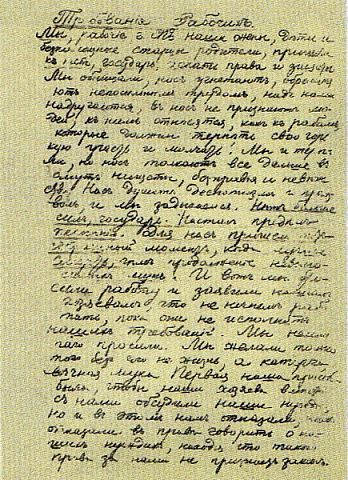 Требованія Рабочихъ.
Мы, рабочіе г. П. наши жены, дѣти и
безпомощные старцы родители, пришли
къ тебѣ, государь искати правы и защиты
Мы обнищали, насъ угнетаютъ, обремен
яютъ непосильнымъ трудомъ, надъ нами
надругаются, въ насъ не признаютъ лю
дей, къ намъ относятся какъ къ рабамъ
которые должны терпѣть свою гор
кую участь и молчать! Мы и терпѣ
ли, но насъ толкаютъ все дальше въ
омутъ нищеты, безправія и невѣж
ства. Насъ душитъ деспотизмъ и прои
волъ и мы задыхаемся. Нѣтъ больше
силъ, государь. Насталъ предѣлъ
терпѣнію. Для насъ пришелъ тотъ
моментъ, когда лучше
смерть, чѣмъ продолженіе невыно
симыхъ мукъ! И вотъ мы бро
сили работу и заявили нашимъ
хозяевамъ что не начнемъ рабо
тать, пока они не исполнятъ
нашихъ требованій. Мы немно
гаго просили. Мы желали только
того безъ чего не жизнь а каторга
вѣчная мука Первая наша просьба
была, чтобы наши хозяева вмѣстѣ
съ нами обсудили наши нужды,
но и въ этомъ намъ отказали, намъ
отказали въ правѣ говорить о на
шихъ нуждахъ, находя что такого
права за нами не признаетъ законъ.